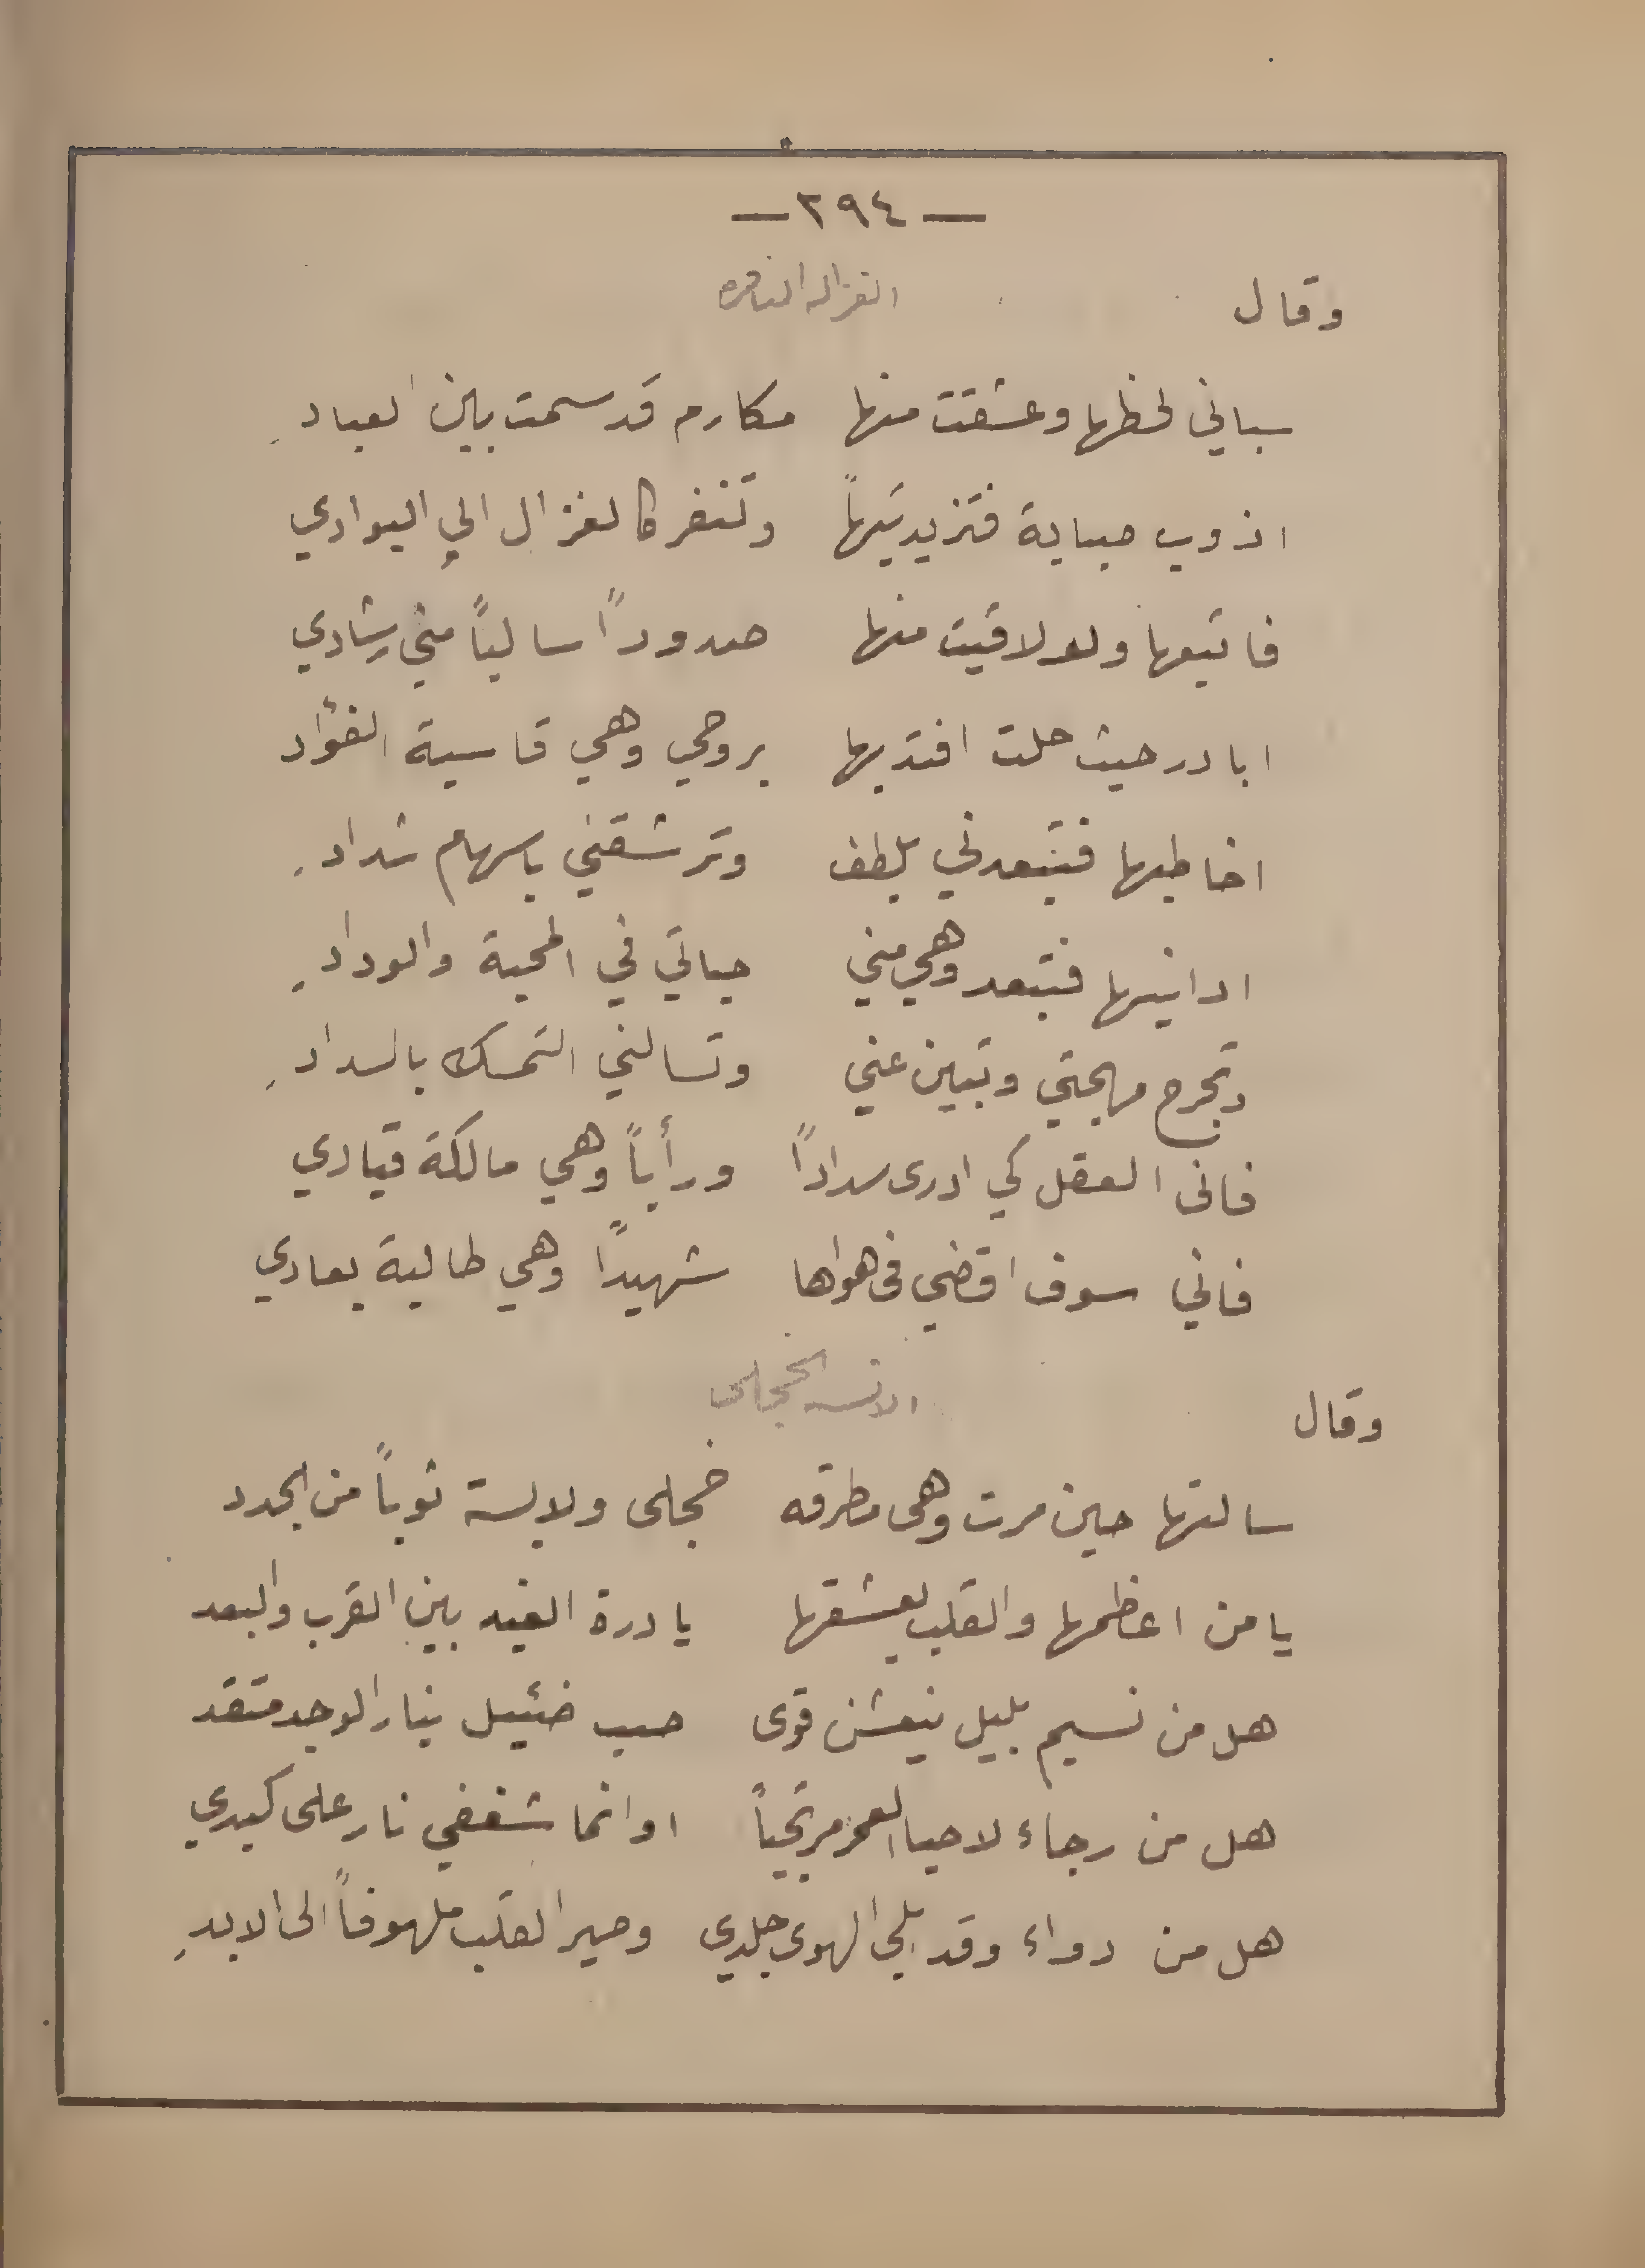 — ٢٩٤ —
وقال الغزاله النافره
سباني لحظها وعشقت منها مكارم قد سمت بين العبادِ
اذوب صبابة فتزيد تيهاً وتنفر كالغزال الي البوادي
فاتبعها ولو لاقيت منها صدوداً سالباً مني رشادي
ابادر حيث حلت افتديها بروحي وهي قاسية الفؤاد
اخاطبها فتبعدني بلطف وترشقني باسهام شدادِ
ادانيها فتبعد وهي مني حياتي في المحبة والودادِ
وتجرح مهجتي وتبين عني وتسالني التمسك بالسدادِ
فانى العقل كي ادرى سداداً ورأياً وهي مالكة قيادي
فاني سوف اقضي فى هواها شهيداً وهي طالبة بعادي
وقال الانسه الخجلى
سالتها حين مرت وهى مطرقه خجلى ولابسة ثوباً من الجدد
يا من اعظمها والقلب يعشقها يا درة الغيد بين القرب والبعد
هل من نسيم بليل ينعشن قوى صب ضئيل بنار الوجد متقد
هل من رجاء لاحيا العمر مرتجياً او انما شغفي نار على كبدي
هل من دواء وقد بلي الهوى جلدي وصير القلب ملهوفاً الى الابدِ